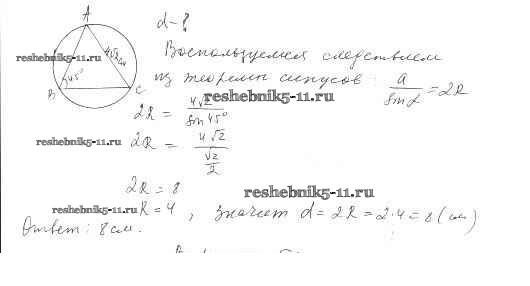 A
d - ?
4√2 см
Воспользуемся следствием
reshebnik5-11.ru
45°
B
C
из теоремы синусов : a/sin α = 2R
reshebnik5-11.ru
2R = 4√2/sin 45°
reshebnik5-11.ru
2R = 4√2/(√2/2)
2R = 8
reshebnik5-11.ru
reshebnik5-11.ru
R = 4 , значит d = 2R = 2·4 = 8 (см)
Ответ : 8 см.